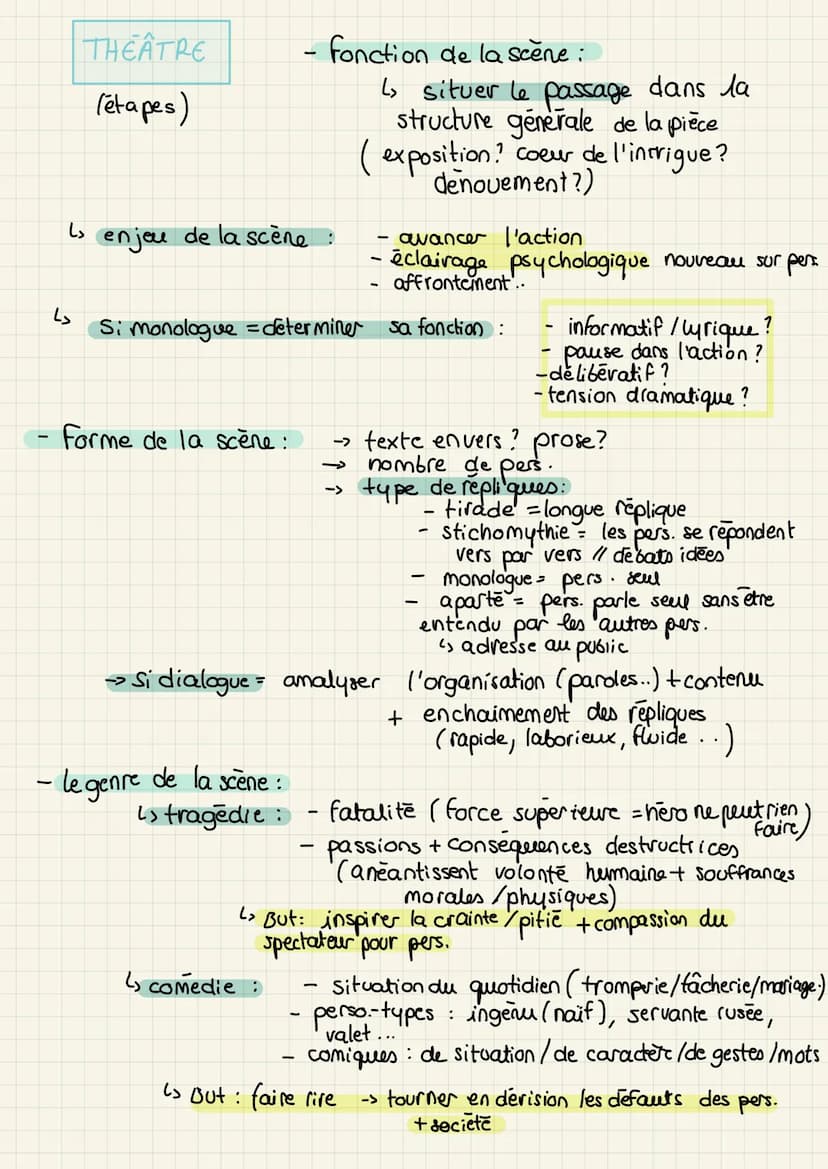 THÉÂTRE
(étapes)
- fonction de la scène :
↳ situer le passage dans la
structure générale de la pièce
( exposition? coeur de l'intrigue?
dénouement?)
↳ enjeu de la scène :
- avancer l'action
- éclairage psychologique nouveau sur pers
- affrontement..
↳ Si monologue = déterminer sa fonction :
- informatif / lyrique ?
- pause dans l'action ?
- délibératif ?
- tension dramatique ?
- Forme de la scène :
→ texte en vers ? prose?
→ nombre de pers.
→ type de répliques:
- tirade = longue réplique
- stichomythie = les pers. se répondent
vers par vers // débats idées
- monologue = pers. seul
- aparté = pers. parle seul sans être
entendu par les autres pers.
↳ adresse au public
→ Si dialogue = analyser l'organisation (paroles..) + contenu
+ enchaimement des répliques
(rapide, laborieux, fluide ..)
- le genre de la scène :
↳ tragédie : - fatalité (force supérieure = héro ne peut rien
faire)
- passions + conséquences destructrices
(anéantissent volonté humaine + souffrances
morales / physiques)
↳ But: inspirer la crainte / pitié + compassion du
spectateur pour pers.
↳ comédie : - situation du quotidien (tromperie/fâcherie/mariage.)
- perso-types : ingénu (naïf), servante rusée,
valet ...
- comiques : de situation / de caractère / de gestes / mots
↳ But : faire rire -> tourner en dérision les défauts des pers.
+ société